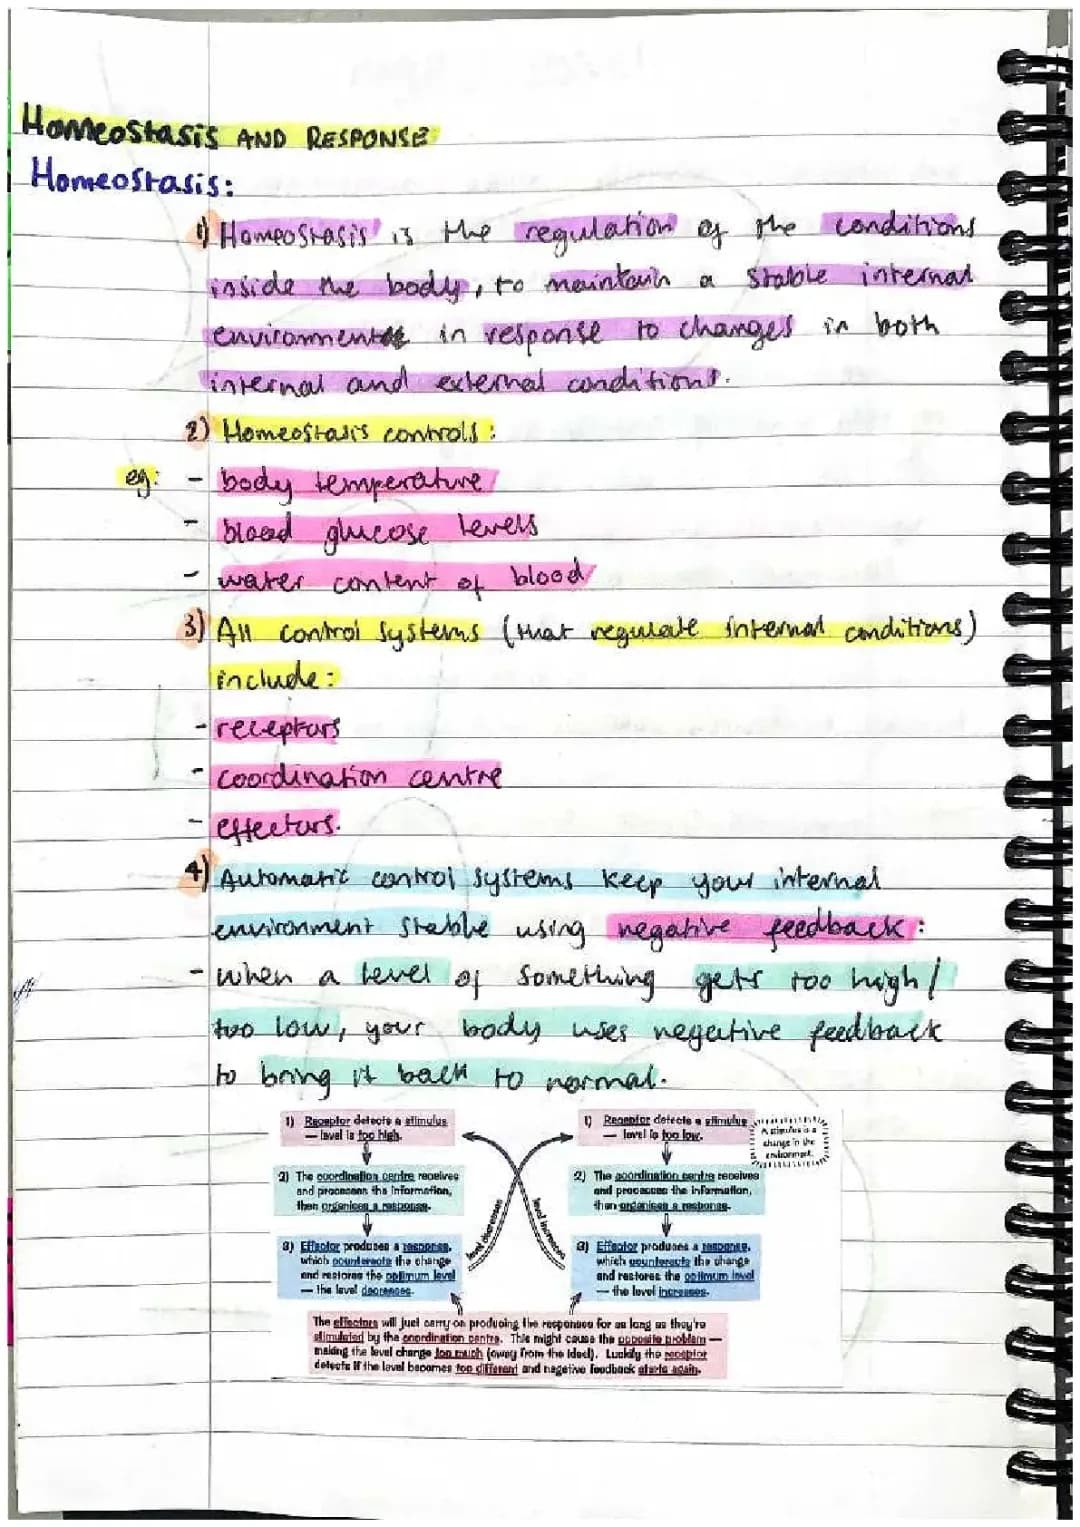 Homeostasis AND RESPONSE
Homeostasis:
1) Homeostasis is the regulation of the conditions
inside the body, to maintain a stable internal
environment in response to changes in both
internal and external conditions.
2) Homeostasis controls:
eg: - body temperature
- blood glucose levels
- water content of blood
3) All control systems (that regulate internal conditions)
include:
- receptors
- coordination centre
- effectors.
4) Automatic control systems keep your internal
environment stable using negative feedback:
- when a level of something gets too high/
too low, your body uses negative feedback
to bring it back to normal.
1) Receptor detects a stimulus
— level is too high.
2) The coordination centre receives
and processes the information,
then organises a response.
3) Effector produces a response,
which counteracts the change
and restores the optimum level
— the level decreases.
level decreases
level increases
1) Receptor detects a stimulus
— level is too low.
2) The coordination centre receives
and processes the information,
then organises a response.
3) Effector produces a response,
which counteracts the change
and restores the optimum level
— the level increases.
A stimulus is a
change in the
environment.
The effectors will just carry on producing the responses for as long as they're
stimulated by the coordination centre. This might cause the opposite problem —
making the level change too much (away from the ideal). Luckily the receptor
detects if the level becomes too different and negative feedback starts again.